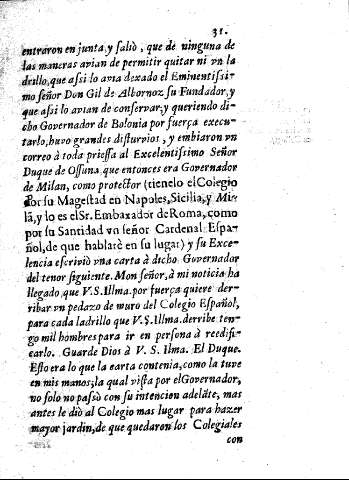 31.
entraron en junta, y saliò, que de ninguna de
las maneras avian de permitir quitar ni vn la
drillo, que assi lo avia dexado el Eminentissi-
mo señor Don Gil de Albornoz su Fundador, y
que assi lo avian de conservar; y queriendo di-
cho Governador de Bolonia por fuerça execu-
tarlo, huvo grandes disturvios, y embiaron vn
correo à toda priessa al Excelentissimo Señor
Duque de Ossuna, que entonces era Governador
de Milan, como protector (tienelo el Colegio
por su Magestad en Napoles, Sicilia, y Mi-
lã, y lo es el Sr. Embaxador de Roma, como
por su Santidad vn señor Cardenal Espa-
ñol, de que hablarè en su lugar) y su Exce-
lencia escriviò vna carta à dicho Governador
del tenor siguiente. Mon señor, à mi noticia ha
llegado, que V. S. Illma. por fuerça quiere der-
ribar vn pedazo de muro del Colegio Español,
para cada ladrillo que V. S. Illma. derribe ten-
go mil hombres para ir en persona à reedifi-
carlo. Guarde Dios à V. S. Ilma. El Duque.
Esto era lo que la earta contenia, como la tuve
en mis manos; la qual vista por el Governador,
no solo no passò con su intencion adelãte, mas
antes le diò al Colegio mas lugar para hazer
mayor jardin, de que quedaron los Colegiales
con